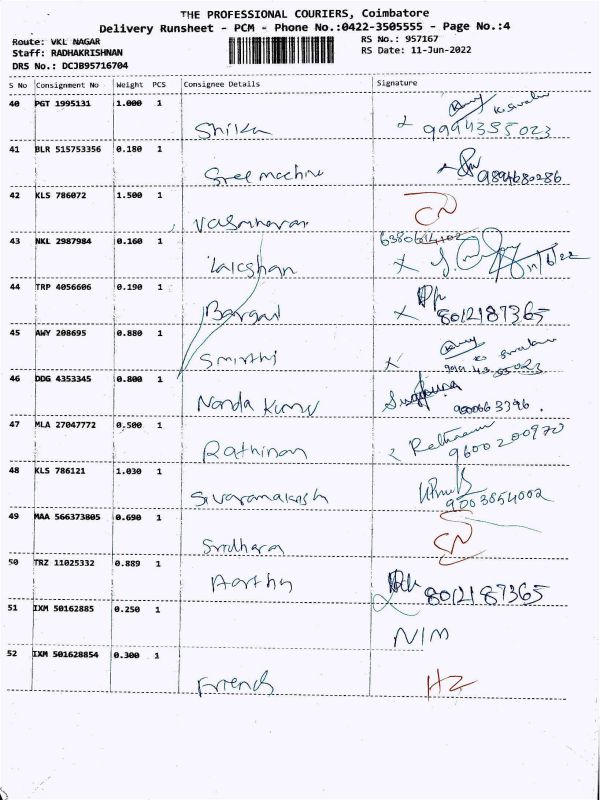 THE PROFESSIONAL COURIERS, Coimbatore
Delivery Runsheet - PCM - Phone No.:0422-3505555 - Page No.:4
Route: VKL NAGAR
RS No.: 957167
Staff: RADHAKRISHNAN
RS Date: 11-Jun-2022
DRS No.: DCJB95716704
S No Consignment No Weight PCS Consignee Details Signature
40 PGT 1995131 1.000 1
Shilka 9994355023
41 BLR 515753356 0.180 1
Sree machine 9894680286
42 KLS 786072 1.500 1
CN
43 NKL 2987984 0.160 1
Lakshan 11/6/22
44 TRP 4056606 0.190 1
X 8012187365
45 AWY 208695 0.880 1
Smirthi X
46 DDG 4353345 0.800 1
Nanda Kumar
47 MLA 27047772 0.500 1
Rathinam 9600200970
48 KLS 786121 1.030 1
Sivaramakrish 9003654002
49 MAA 566373805 0.690 1
Sridharan CN
50 TRZ 11025332 0.889 1
Aarthy 8012187365
51 IXM 50162885 0.250 1
NIM
52 IXM 501628854 0.300 1
Friends HZ